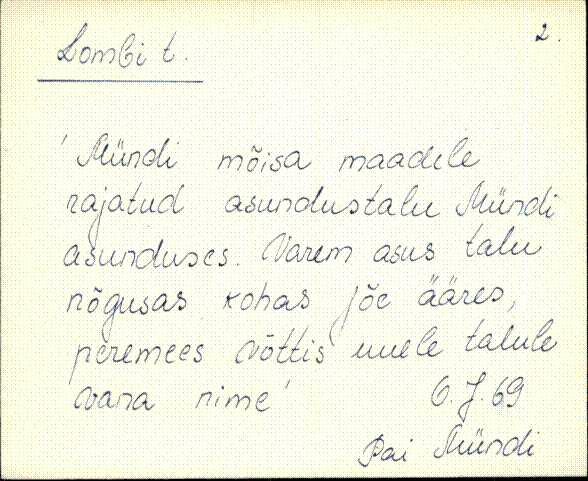 Lombi t.
2.
'Mündi mõisa maadele
rajatud asundustalu Mündi
asunduses. Varem asus talu
nõgusas kohas jõe ääres,
peremees võttis uuele talule
vana nime'
O. J. 69
Pai Mündi